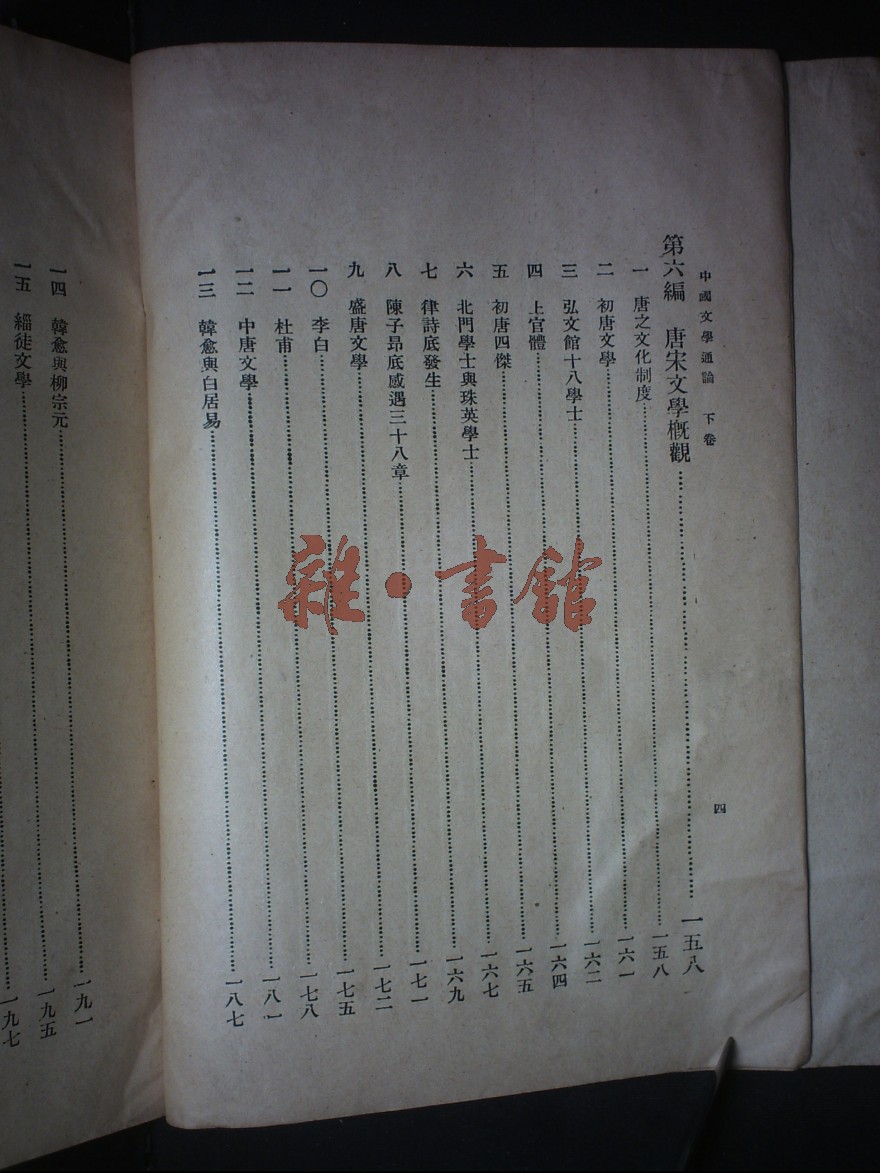 中國文學通論　下卷
四
第六編　唐宋文學概觀……一五八
一　唐之文化制度……一五八
二　初唐文學……一六一
三　弘文館十八學士……一六二
四　上官體……一六四
五　初唐四傑……一六五
六　北門學士與珠英學士……一六七
七　律詩底發生……一六九
八　陳子昂底感遇三十八章……一七一
九　盛唐文學……一七二
一〇　李白……一七五
一一　杜甫……一七八
一二　中唐文學……一八一
一三　韓愈與白居易……一八七
一四　韓愈與柳宗元……一九一
一五　緇徒文學……一九五
一九七
雜·書館